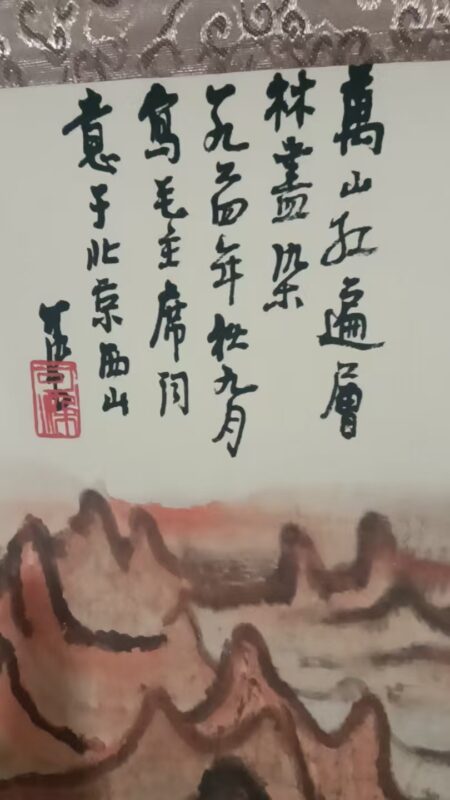 萬山红遍層
林盡染
一九六四年秋九月
寫毛主席词
意于北京西山